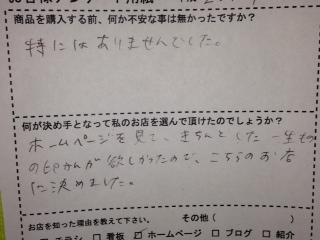 商品を購入する前、何か不安な事は無かったですか？
特にはありませんでした。
何が決め手となって私のお店を選んで頂けたのでしょうか？
ホームページを見て、きちんとした一生もの
の印かんが欲しかったので、こちらのお店
に決めました。
お店を知った理由を教えて下さい。 その他（ ）
チラシ □ 看板 ☑ ホームページ □ ブログ □ 紹介